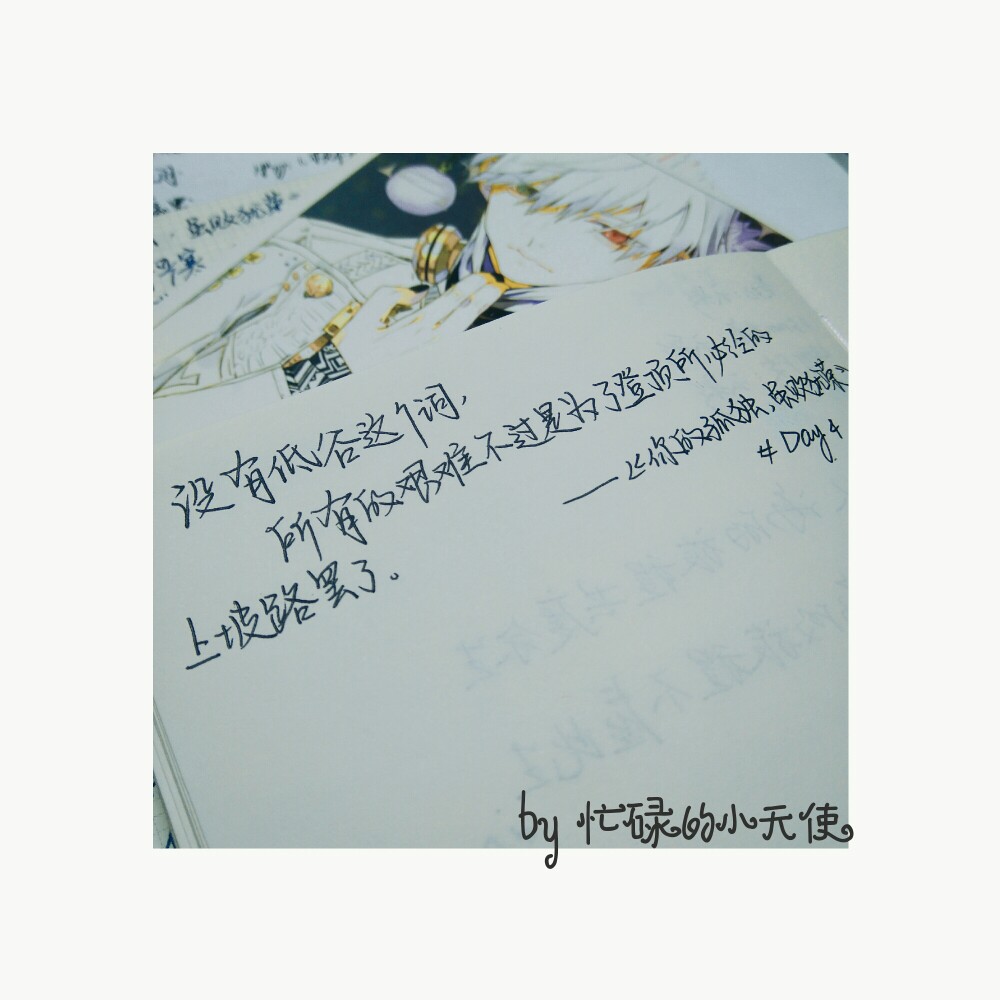 虽败犹荣
没有低谷这个词,
所有的艰难不过是为了登顶所必经的
上坡路罢了。
——《你的孤独,虽败犹荣》
# Day 4
by 忙碌的小天使